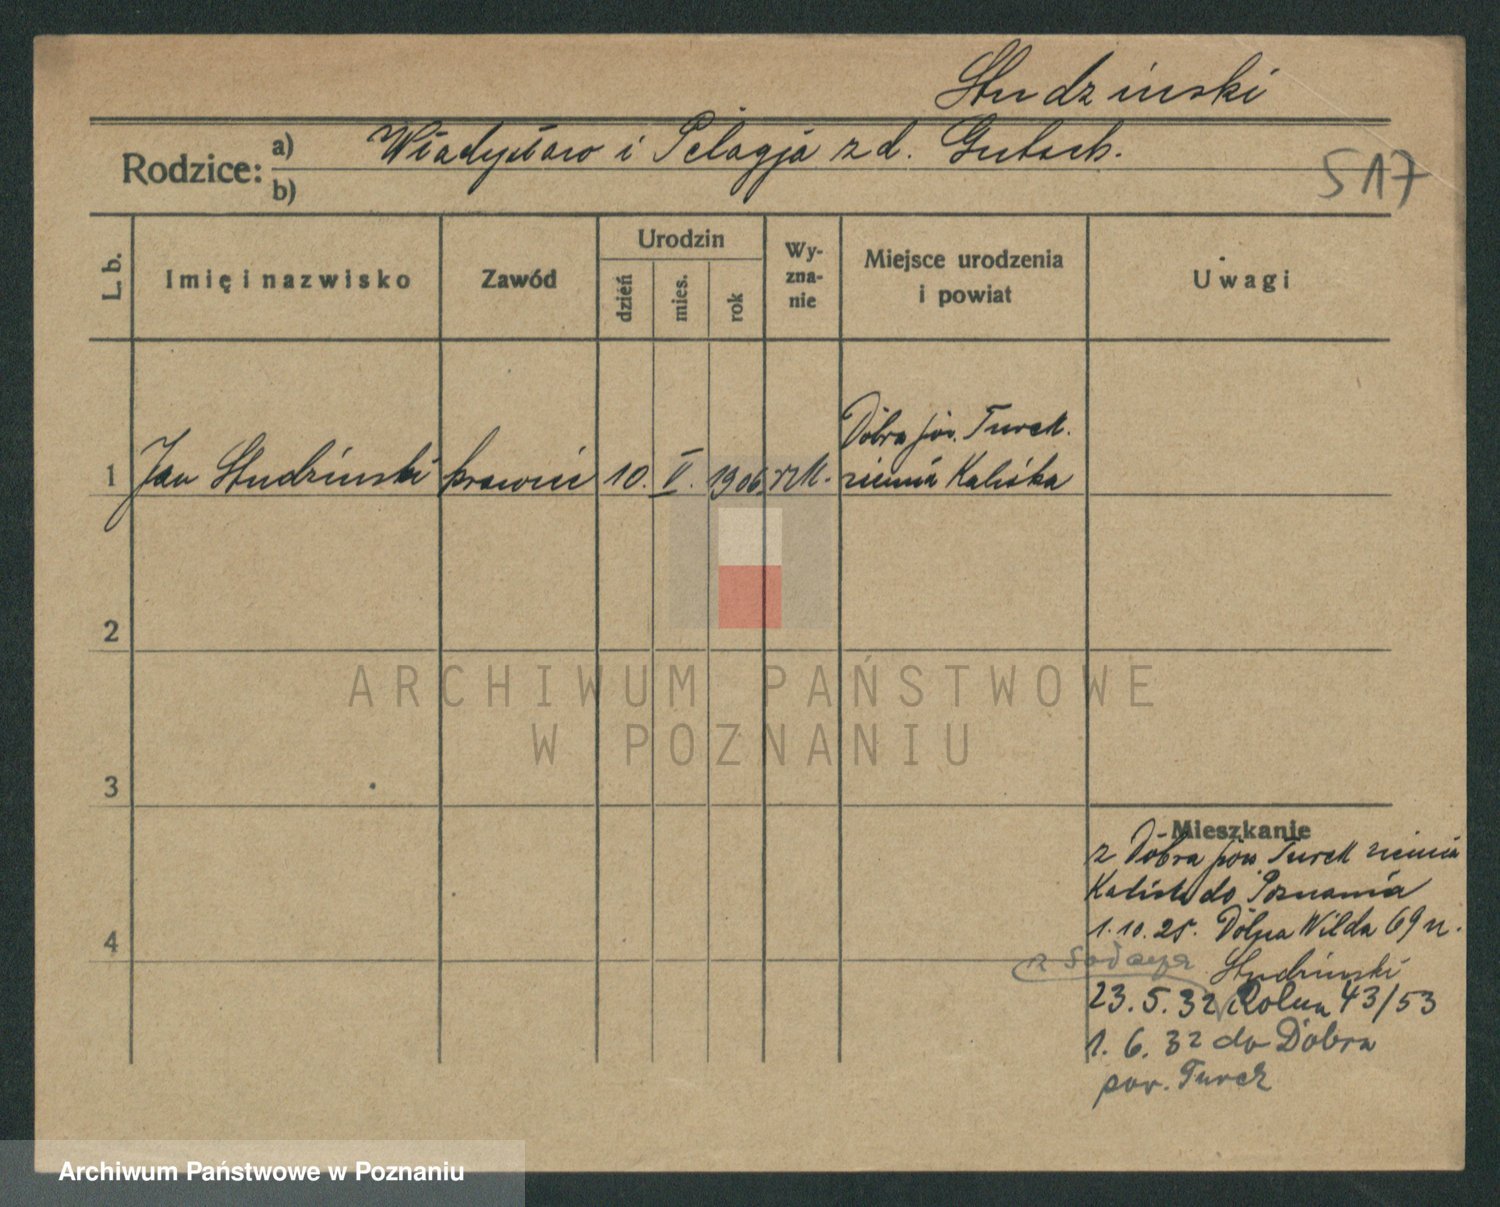 Studzinski
Rodzice: a) Władysław i Pelagja z d. Gutsch.
b)
517
L. b.
Imię i nazwisko
Zawód
Urodzin
dzień
mies.
rok
Wy-
zna-
nie
Miejsce urodzenia
i powiat
Uwagi
Dobra pow. Turek.
1 Jan Studzinski krawiec 10. V. 1906. rzk. ziemia Kaliska
2
3
4
ARCHIWUM PAŃSTWOWE
W POZNANIU
Mieszkanie
z Dobra pow. Turek ziemia
Kalisk do Poznania
1.10.25. Dolna Wilda 69 u.
Studzinski
23.5.32 Rolna 43/53
1.6.32 do Dobra
pow. Turek
Archiwum Państwowe w Poznaniu